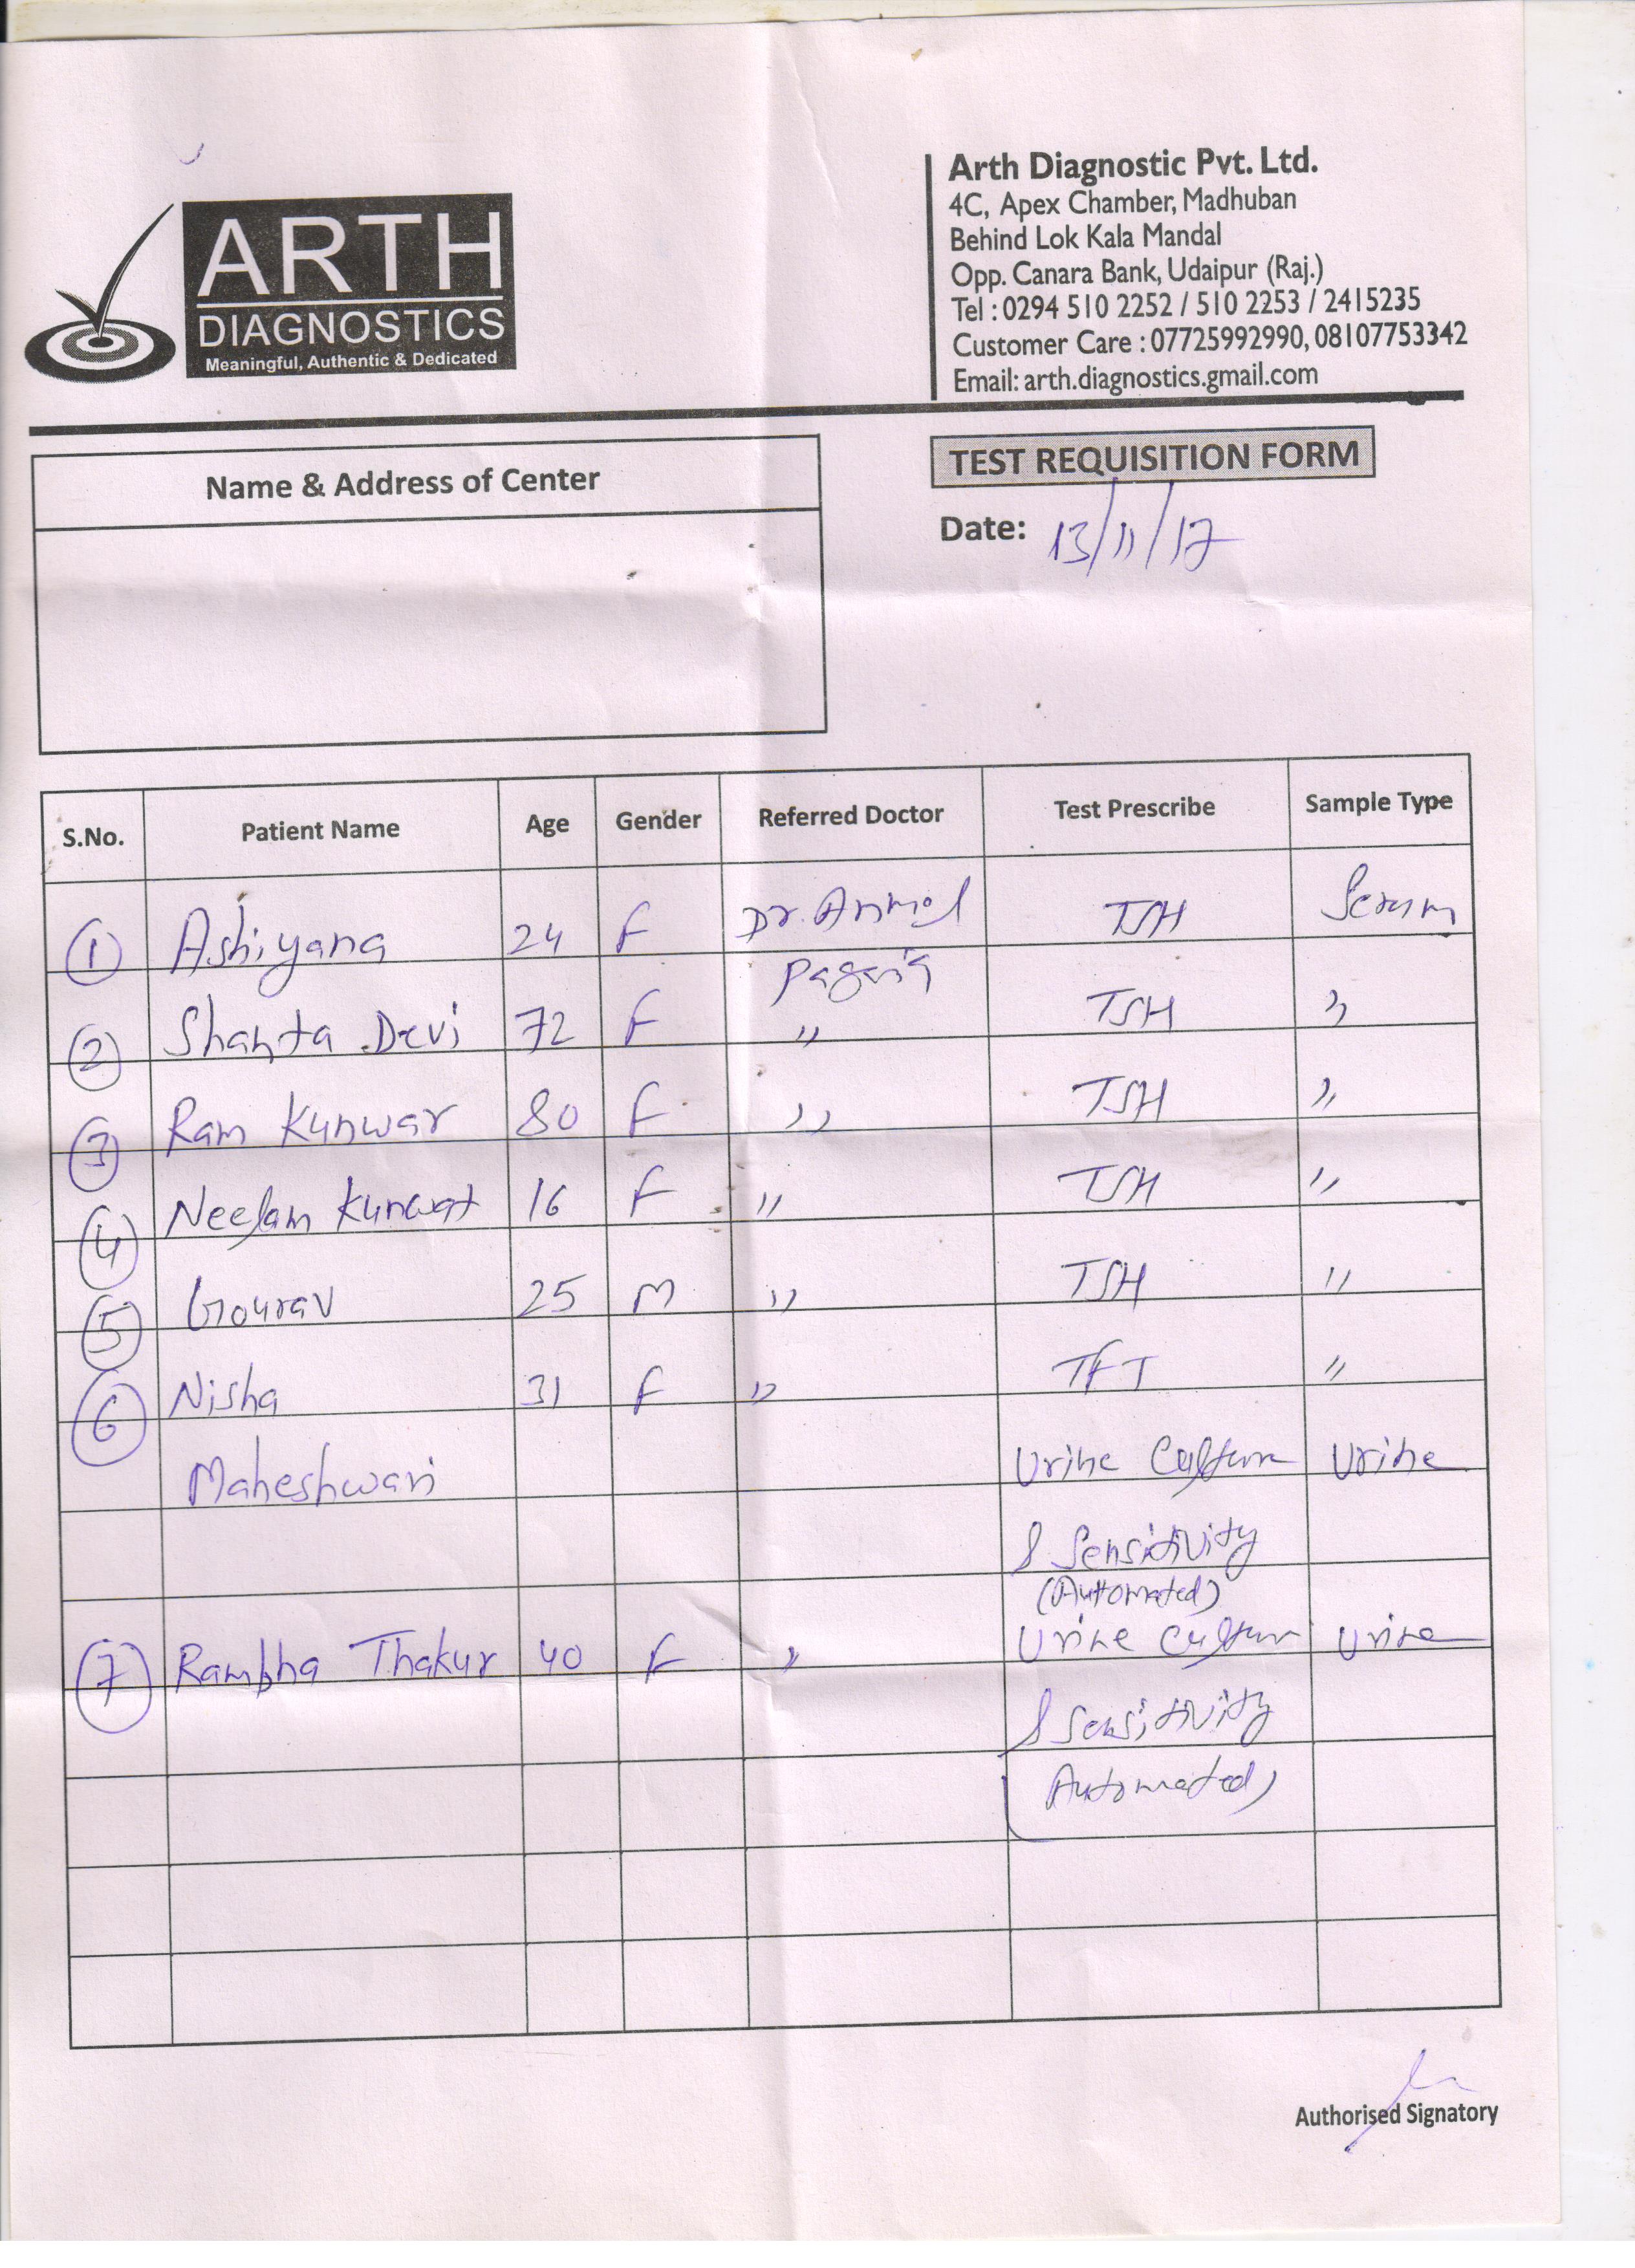 ARTH
DIAGNOSTICS
Meaningful, Authentic & Dedicated
Arth Diagnostic Pvt. Ltd.
4C, Apex Chamber, Madhuban
Behind Lok Kala Mandal
Opp. Canara Bank, Udaipur (Raj.)
Tel : 0294 510 2252 / 510 2253 / 2415235
Customer Care : 07725992990, 08107753342
Email: arth.diagnostics.gmail.com
Name & Address of Center
TEST REQUISITION FORM
Date: 13/11/17
S.No. Patient Name Age Gender Referred Doctor Test Prescribe Sample Type
1 Ashiyana 24 F Dr. Anmol TSH Serum
Pagaria
2 Shanta Devi 72 F " TSH "
3 Ram Kunwar 80 F " TSH "
4 Neelam Kunwar 16 F " TSH "
5 Gourav 25 M " TSH "
6 Nisha 31 F " TFT "
Maheshwari Urine Culture Urine
& Sensitivity
(Automated)
7 Rambha Thakur 40 F " Urine Culture Urine
& Sensitivity
(Automated)
Authorised Signatory